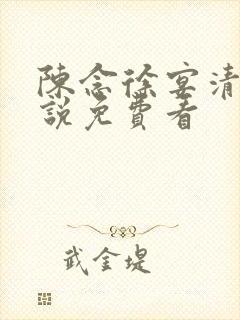 陳念徐宴清
說免費看
武金堤